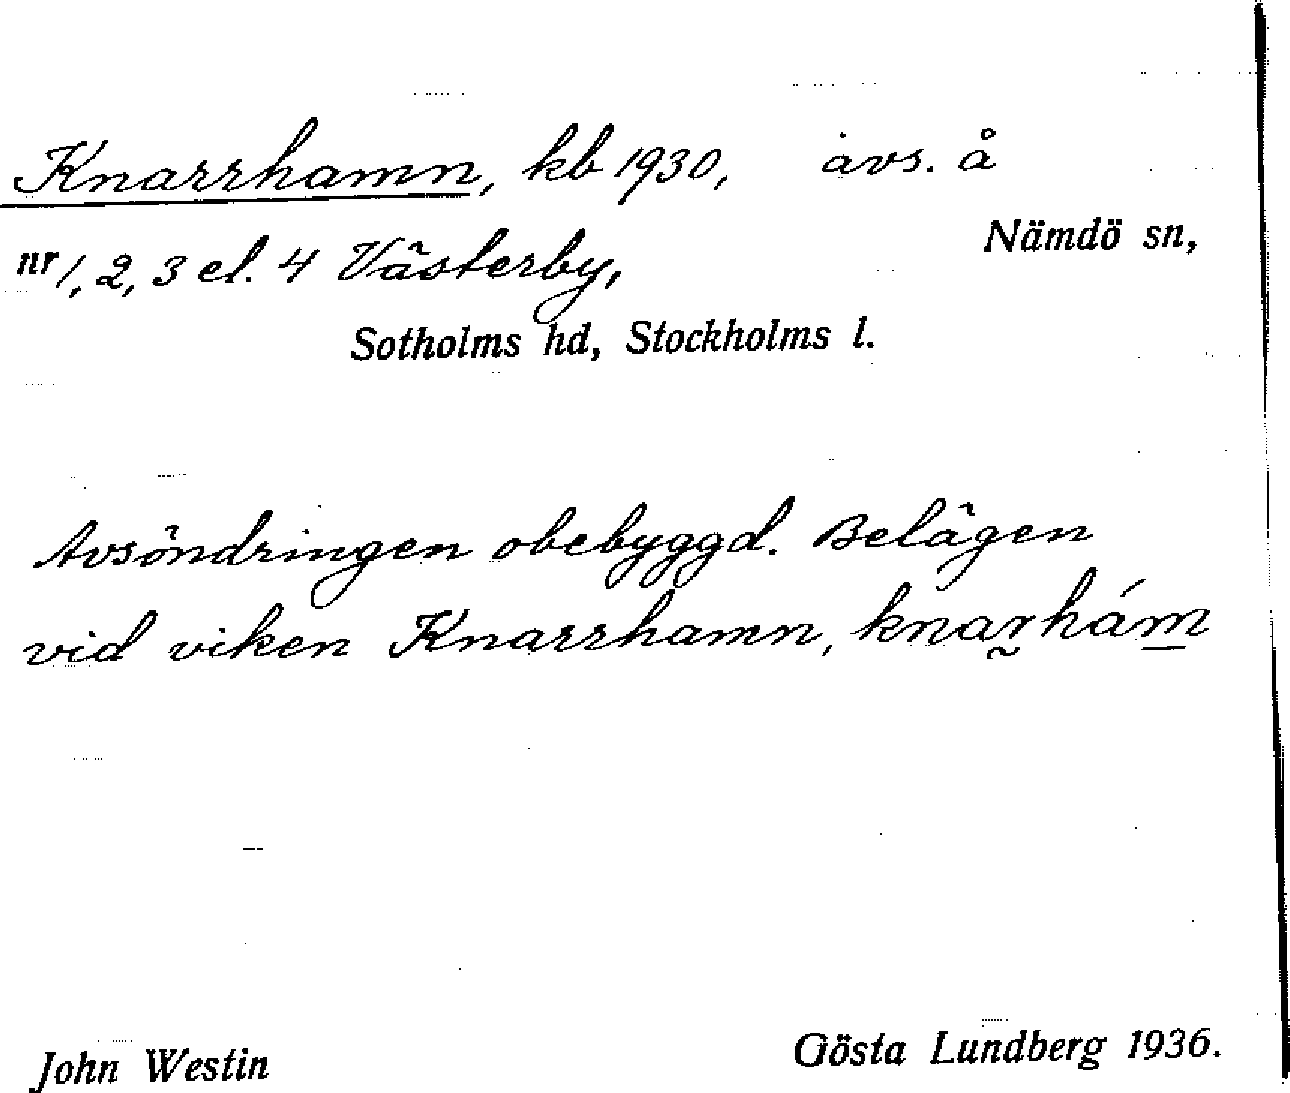 Knarrhamn, kb 1930, avs. å
nr 1, 2, 3 el. 4 Västerby,
Nämdö sn,
Sotholms hd, Stockholms l.
Avsöndringen obebyggd. Belägen
vid viken Knarrhamn, knar̰hám̲
John Westin
Gösta Lundberg 1936.